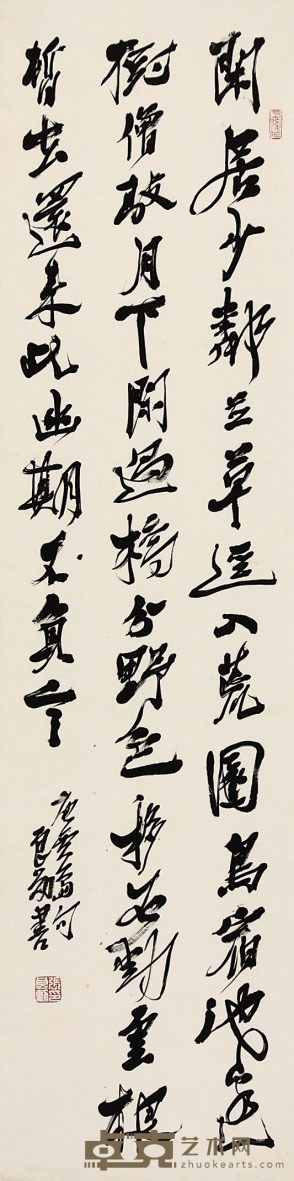 閑居少鄰並草徑入荒園鳥宿池邊
樹僧敲月下門過橋分野色移石動雲根
暫去還來此幽期不負言
唐賈島句
良勛書
卓克艺术网
zhuokearts.com